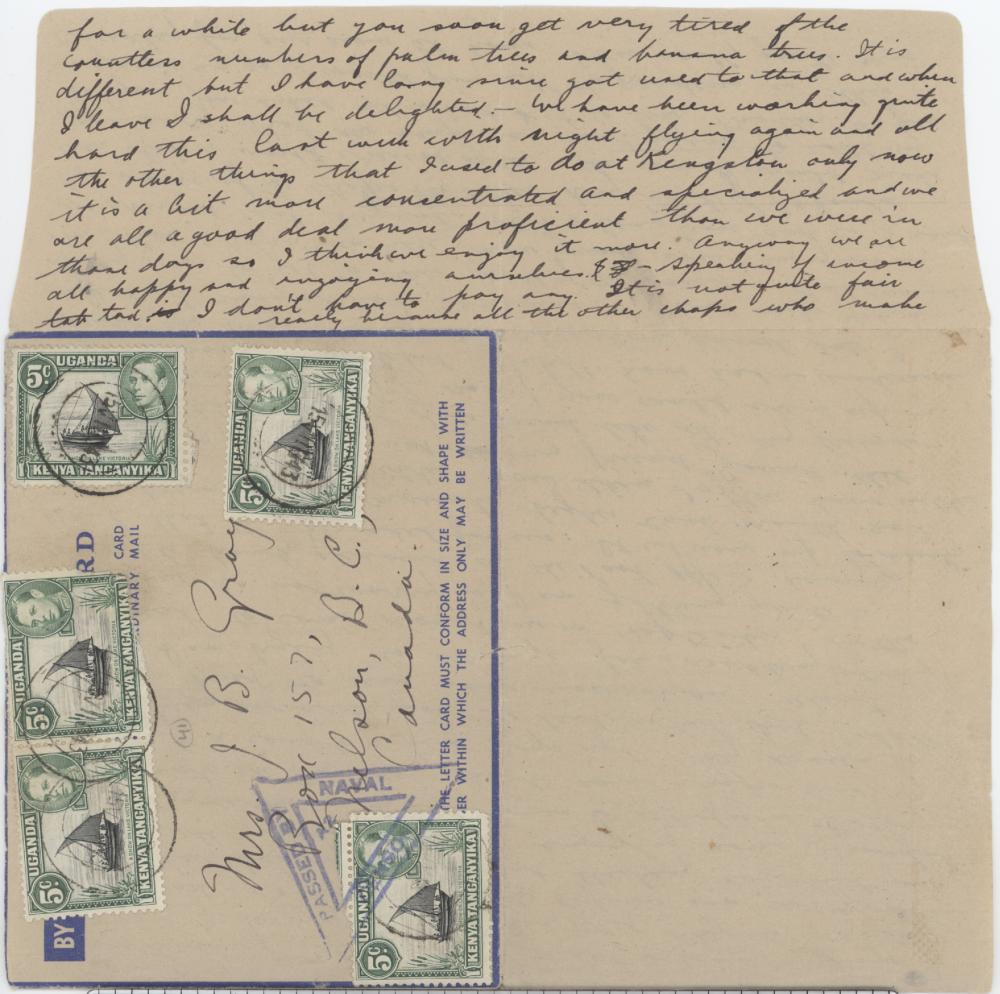 for a while but you soon get very tired of the
countless numbers of palm trees and banana trees. It is
different but I have long since got used to that and when
I leave I shall be delighted - We have been working quite
hard this last week with night flying again and all
the other things that I used to do at Kingston only now
it is a bit more concentrated and specialized and we
are all a good deal more proficient than we were in
those days so I think we enjoy it more. Anyway we are
all happy and enjoying ourselves. - Speaking of income
I don't have to pay any. It is not quite fair
really because all the other chaps who make
UGANDA
5c
KENYA TANGANYIKA
UGANDA
5c
KENYA TANGANYIKA
UGANDA
5c
KENYA TANGANYIKA
UGANDA
5c
KENYA TANGANYIKA
UGANDA
5c
KENYA TANGANYIKA
RD
CARD
DINARY MAIL
BY
Mrs. J. B. Gray
Box 157,
Nelson, B.C.,
Canada.
41
PASSED BY
NAVAL
THE LETTER CARD MUST CONFORM IN SIZE AND SHAPE WITH
ER WITHIN WHICH THE ADDRESS ONLY MAY BE WRITTEN